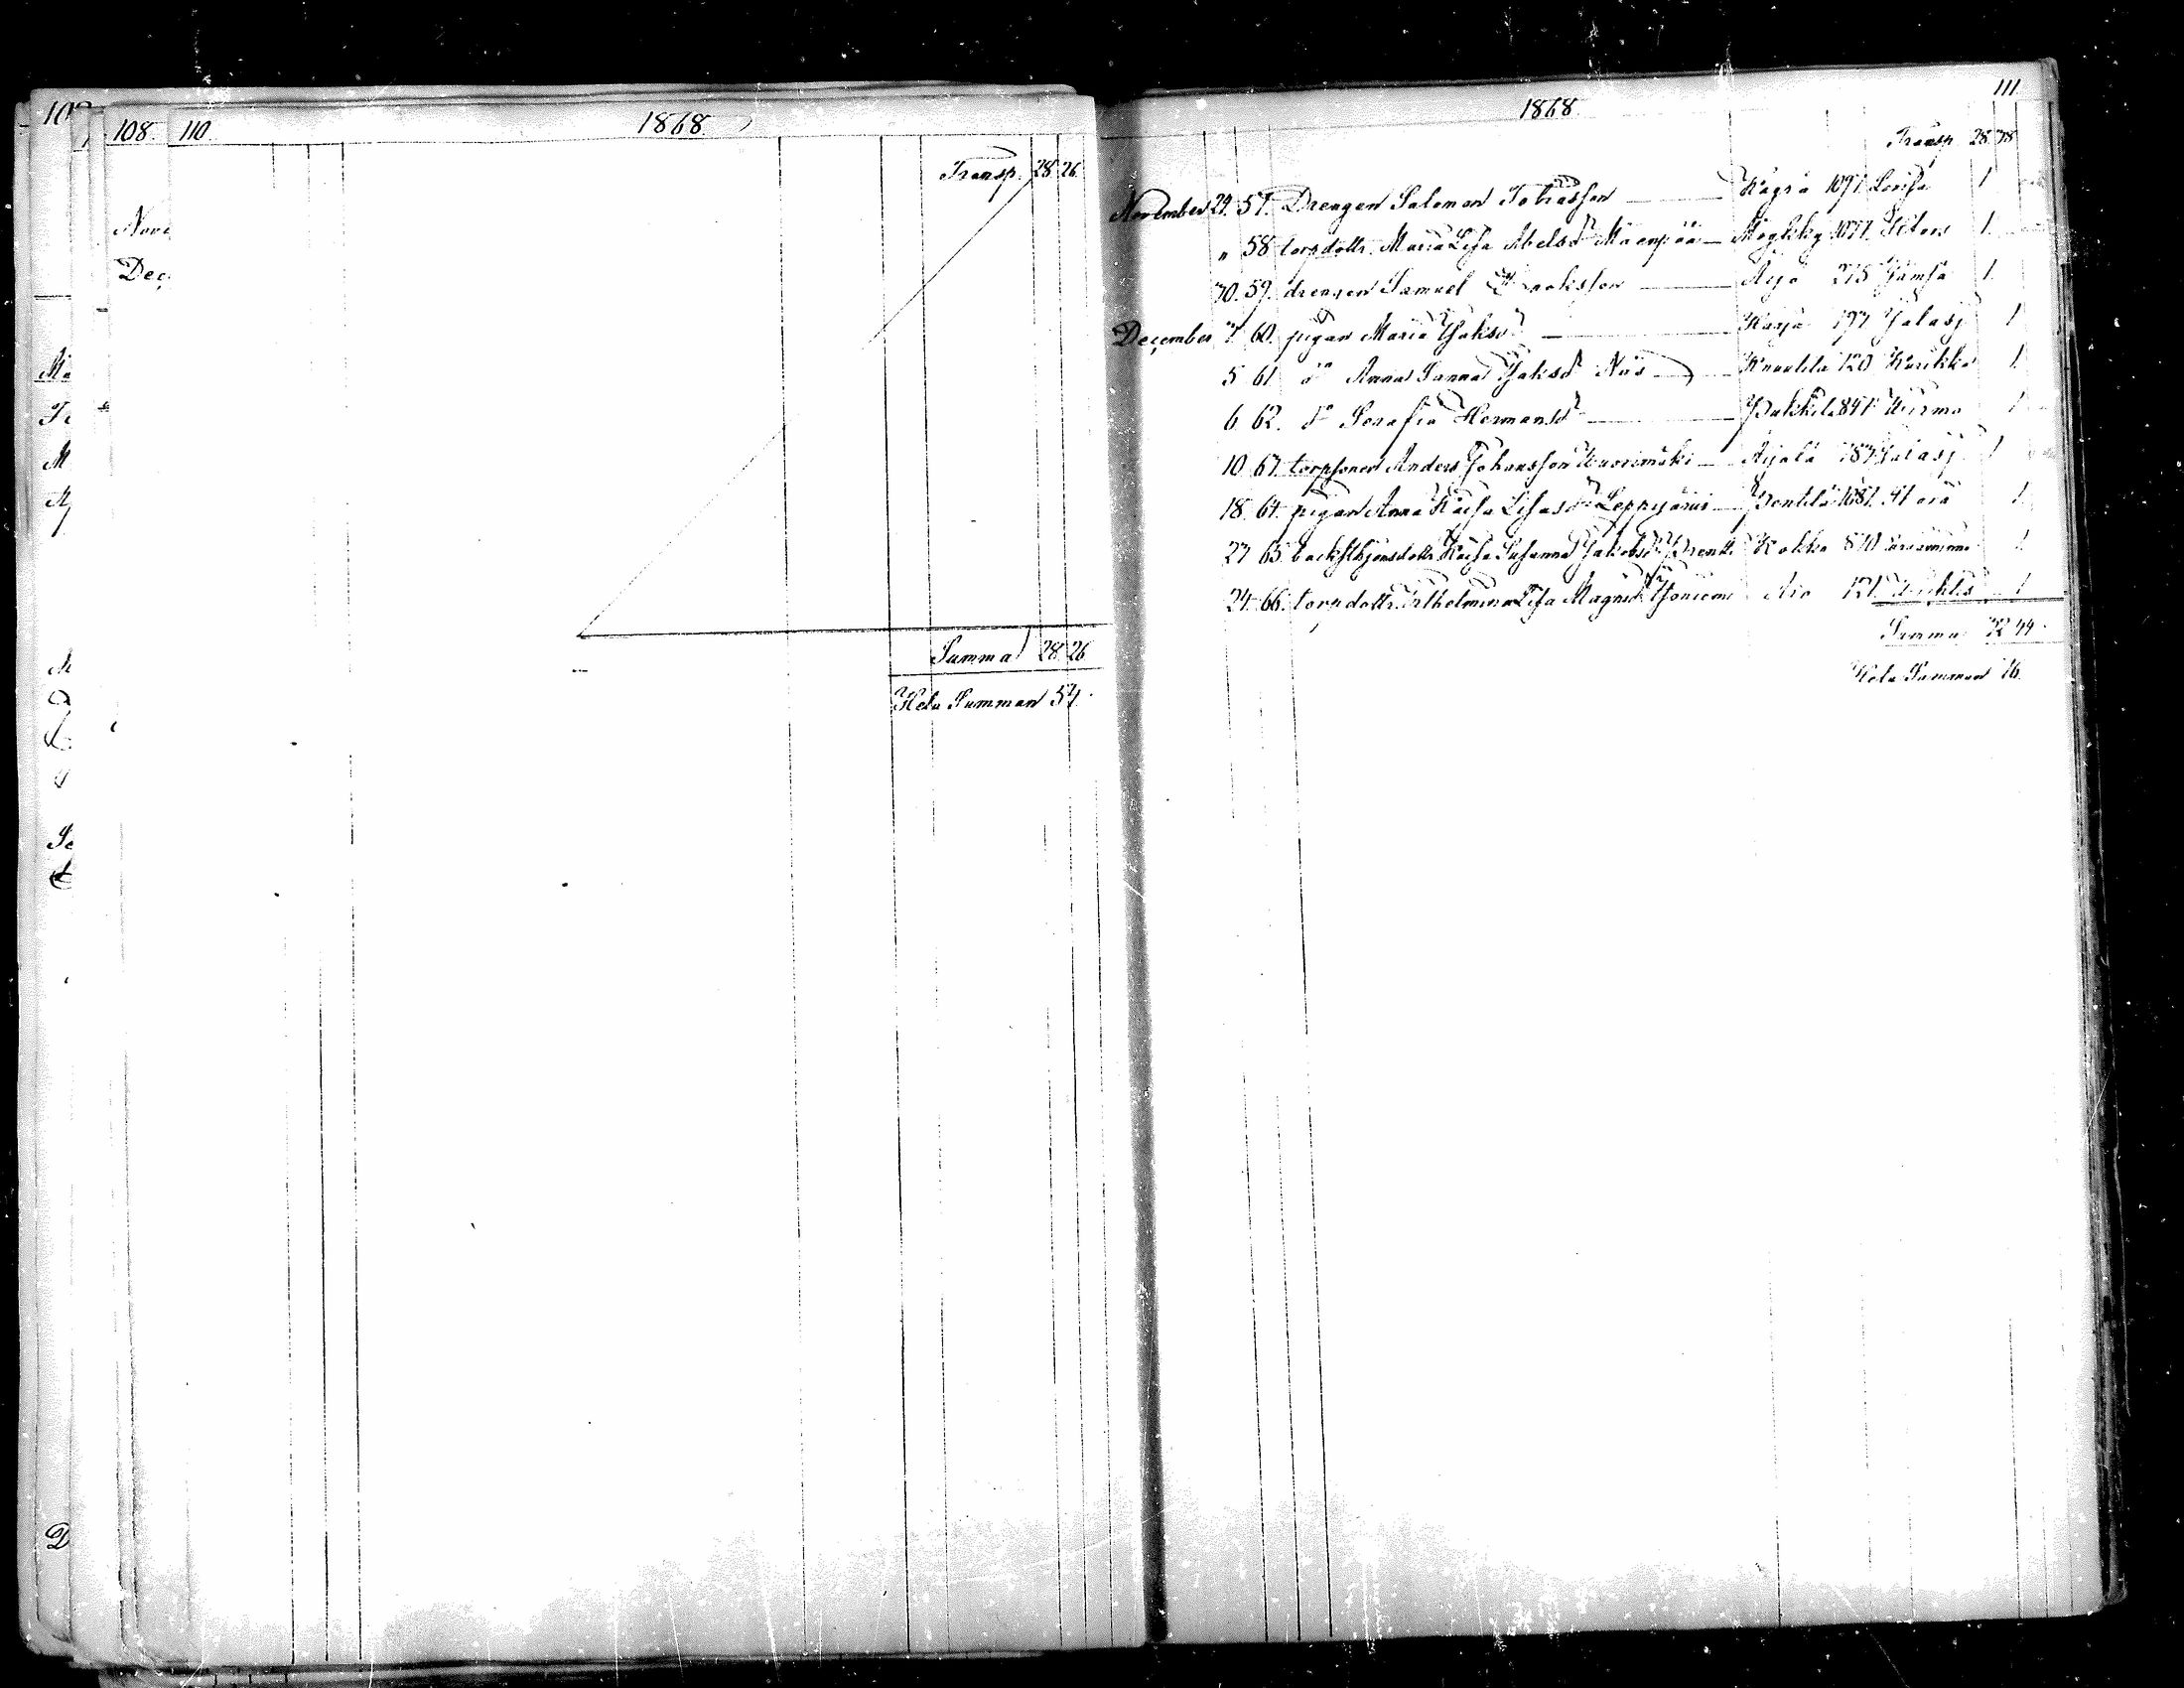 108. 110. 1868
Transp. 28 26
Nove
Dec.
Summa 28 26
Hela Summan 54.
1868 111
Transp. 28 38
November 24. 57. Drengen Salomon Tobiasson Kägrä 1091 Lovisa 1
" 58 torpdottr. Maria Lisa Abelsd Mäenpää 1077 1
30. 59. drengen Samuel Äijö 275 Jämsä 1
December 3 60. pigan Maria Isaksd Karja 197 Jalasj 1
5 61 do Anna Sanna Isaksd Niis Knuutila 120 Kurikka 1
6. 62. do Serafia Hermansd Pukkila 841 Wirmo 1
10 63. torpsonen Anders Johansson Wuorimäki Äijälä 787 Jalasj 1
18. 64. pigan Anna Kaisa Lisasd Leppijärvi Penttilä 1681 1
23 65 backsthjonsdottr. Kaisa Susanna Jakobsd Kokko 870 1
24. 66. torpdottr. Wilhelmina Lisa Magnsd Isoniemi Aro 121 1
Summa 32 44
Hela Summan 76.